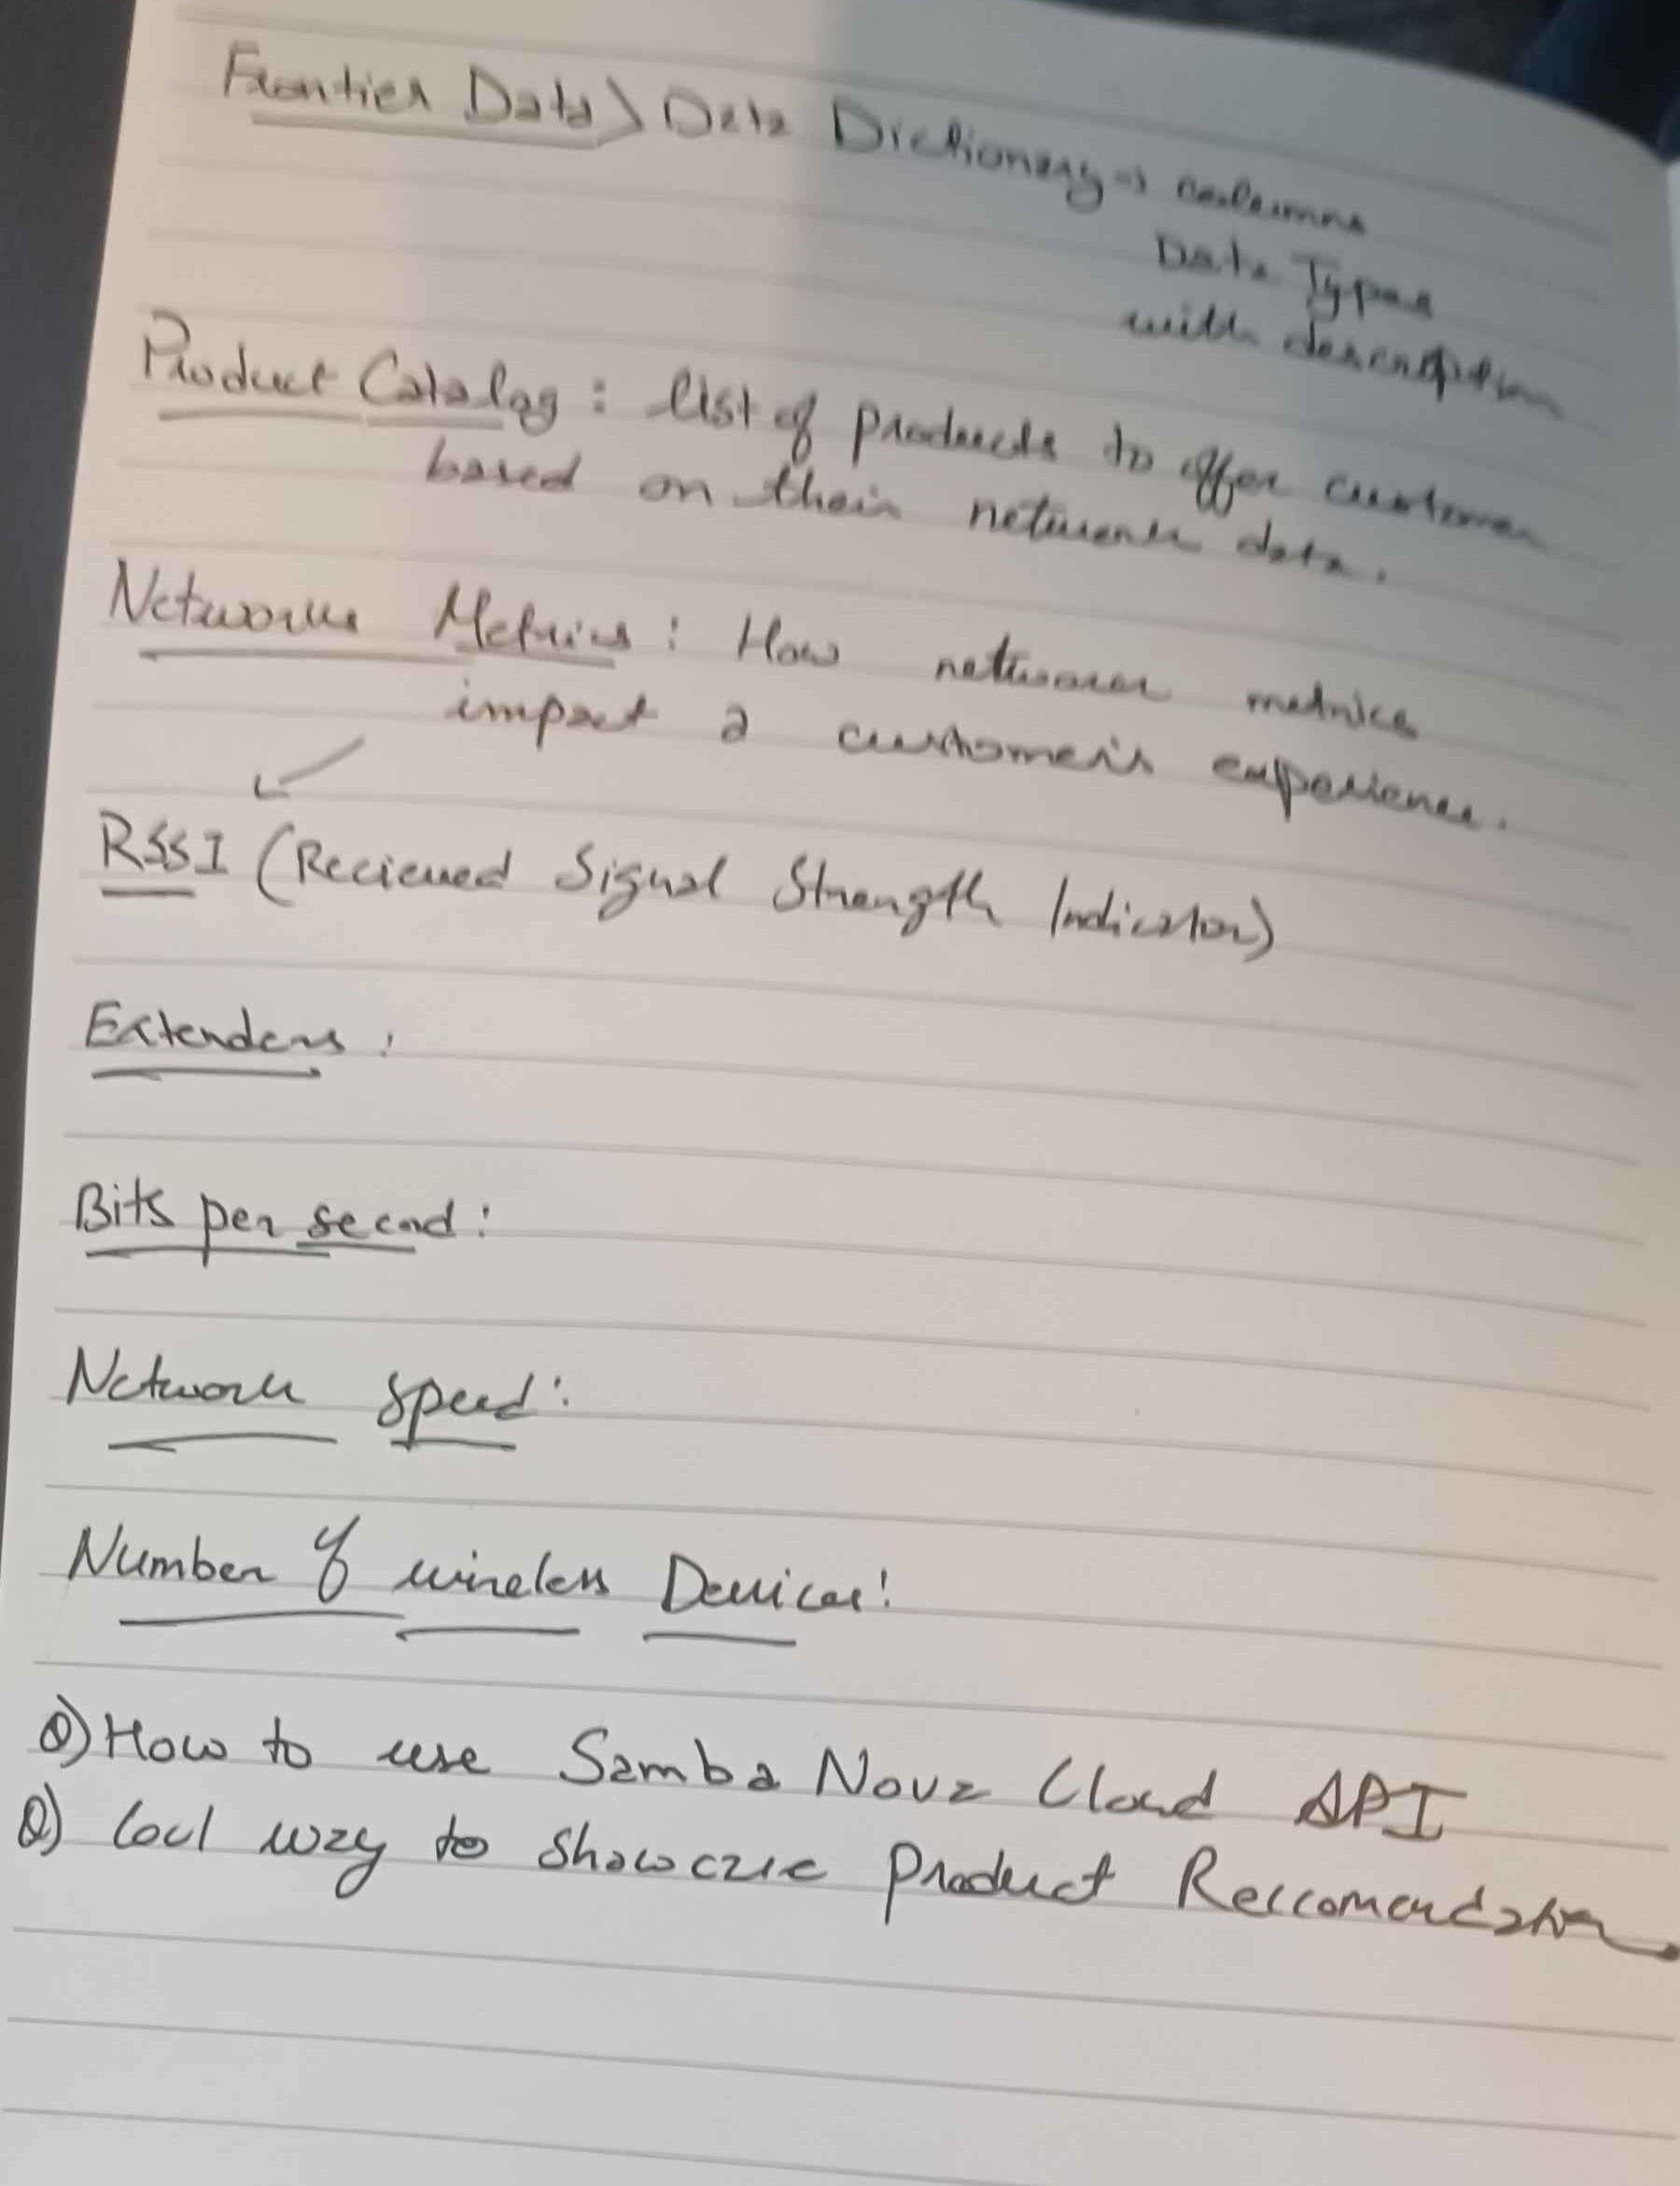 Frontier Data > Data Dictionary → columns
Data Types
with description
Product Catalog : list of products to offer customer
based on their network data.
Network Metrics : How network metrics
impact a customer's experience.
RSSI (Recieved Signal Strength Indicator)
Extenders :
Bits per second :
Network Speed :
Number of wireless Devices :
Q) How to use SambaNova Cloud API
Q) Cool way to showcase Product Reccomendation